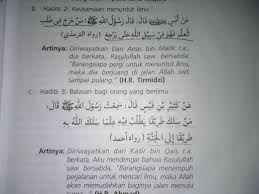 b. Hadits 2: Keutamaan menuntut ilmu
عَنْ أَنَسٍ قَالَ: قَالَ رَسُوْلُ اللهِ ﷺ: مَنْ خَرَجَ فِي طَلَبِ
الْعِلْمِ فَهُوَ فِيْ سَبِيْلِ اللهِ حَتَّى يَرْجِعَ (رواه الترمذي)
Artinya: Diriwayatkan Dari Anas bin Malik r.a.,
dia berkata, Rasulullah saw bersabda:
"Barangsiapa pergi untuk menuntut ilmu,
maka dia berjuang di jalan Allah swt.
sampai pulang." (H.R. Tirmidzi)
c. Hadits 3: Balasan bagi orang yang berilmu
عَنْ كَثِيْرِ بْنِ قَيْسٍ قَالَ: سَمِعْتُ رَسُوْلَ اللهِ ﷺ قَالَ:
مَنْ سَلَكَ طَرِيْقًا يَطْلُبُ فِيْهِ عِلْمًا سَلَكَ اللهُ بِهِ
طَرِيْقًا إِلَى الْجَنَّةِ (رواه أحمد)
Artinya: Diriwayatkan dari Kasir bin Qais r.a.
berkata, Aku mendengar bahwa Rasulullah
saw bersabda, "Barangsiapa menempuh
perjalanan untuk mencari ilmu, maka Allah
akan memudahkan baginya jalan menuju